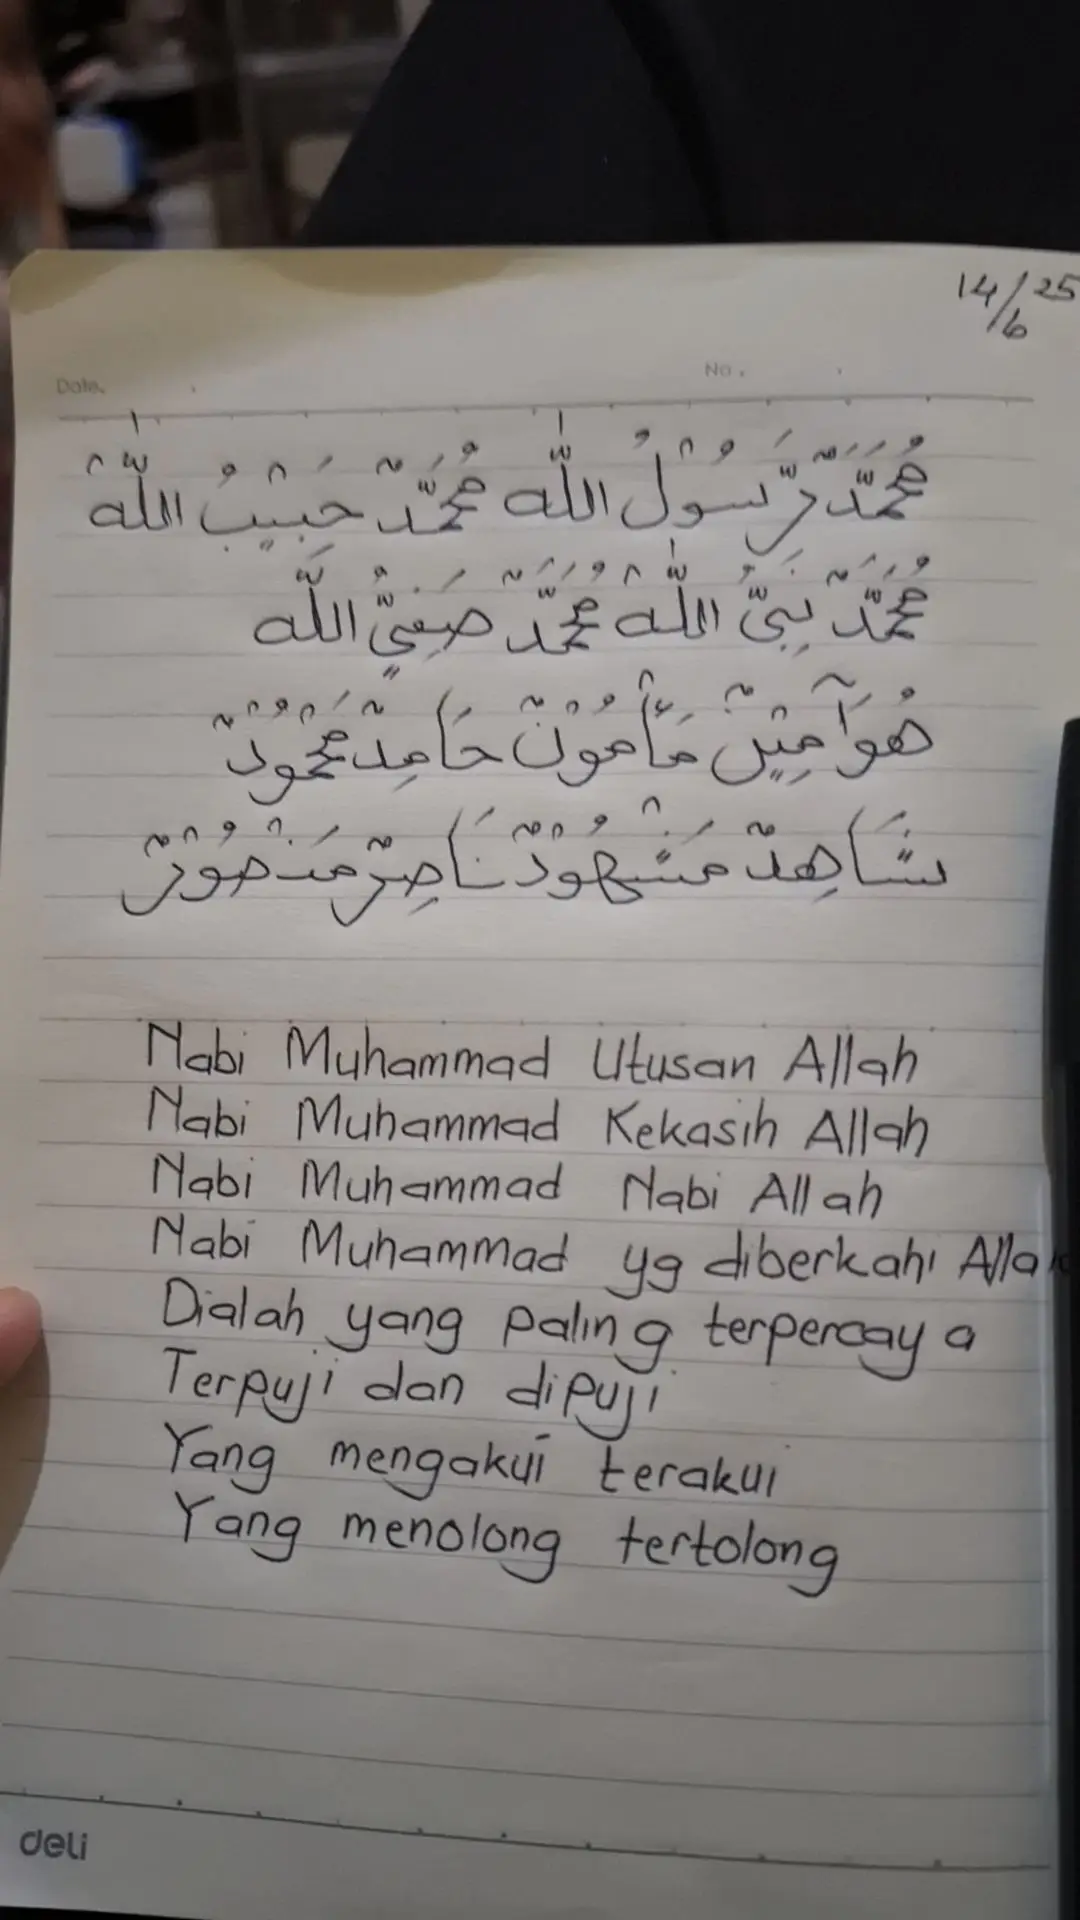 14/6/25
Date.
No.
مُحَمَّدٌ رَّسُوْلُ اللّٰه مُحَمَّدٌ حَبِيْبُ اللّٰه
مُحَمَّدٌ نَبِيُّ اللّٰه مُحَمَّدٌ صَفِيُّ اللّٰه
هُوَ آمِيْنٌ مَأْمُوْنٌ حَامِدٌ مَحْمُوْدٌ
شَاهِدٌ مَشْهُوْدٌ نَاصِرٌ مَنْصُوْرٌ
Nabi Muhammad Utusan Allah
Nabi Muhammad Kekasih Allah
Nabi Muhammad Nabi Allah
Nabi Muhammad yg diberkahi Allah
Dialah yang paling terpercaya
Terpuji dan dipuji
Yang mengakui terakui
Yang menolong tertolong
deli